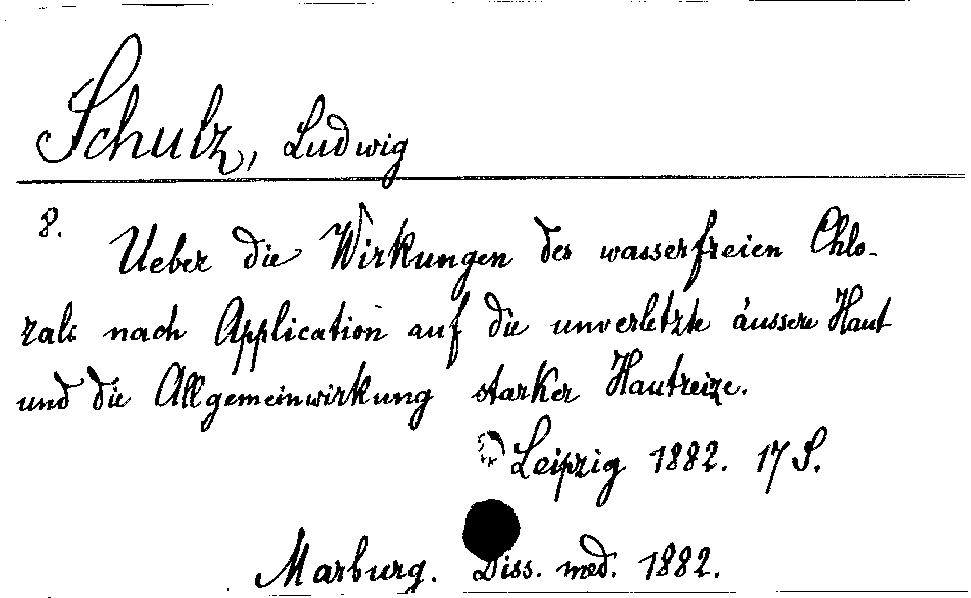 Schulz, Ludwig
8.
Ueber die Wirkungen des wasserfreien Chlo-
rals nach Application auf die unverletzte äussere Haut
und die Allgemeinwirkung starker Hautreize.
Leipzig 1882. 17 S.
Marburg. Diss. med. 1882.